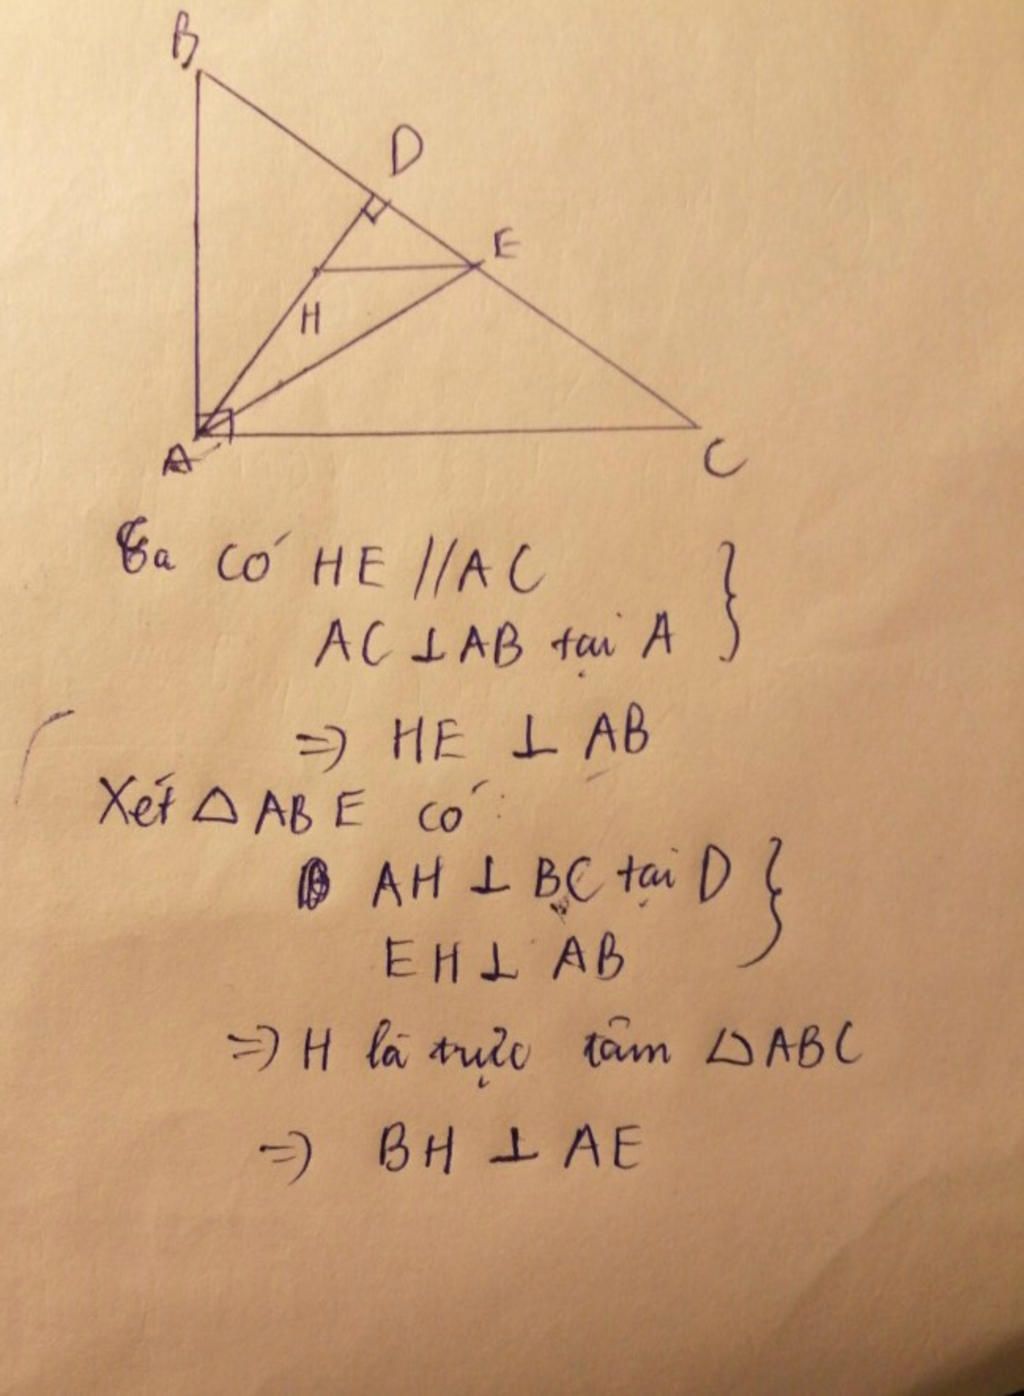 B
D
E
H
A
C
Ta có HE // AC }
AC ⊥ AB tại A
=> HE ⊥ AB
Xét △ ABE có :
AH ⊥ BC tại D }
EH ⊥ AB
=> H là trực tâm △ ABC
=> BH ⊥ AE